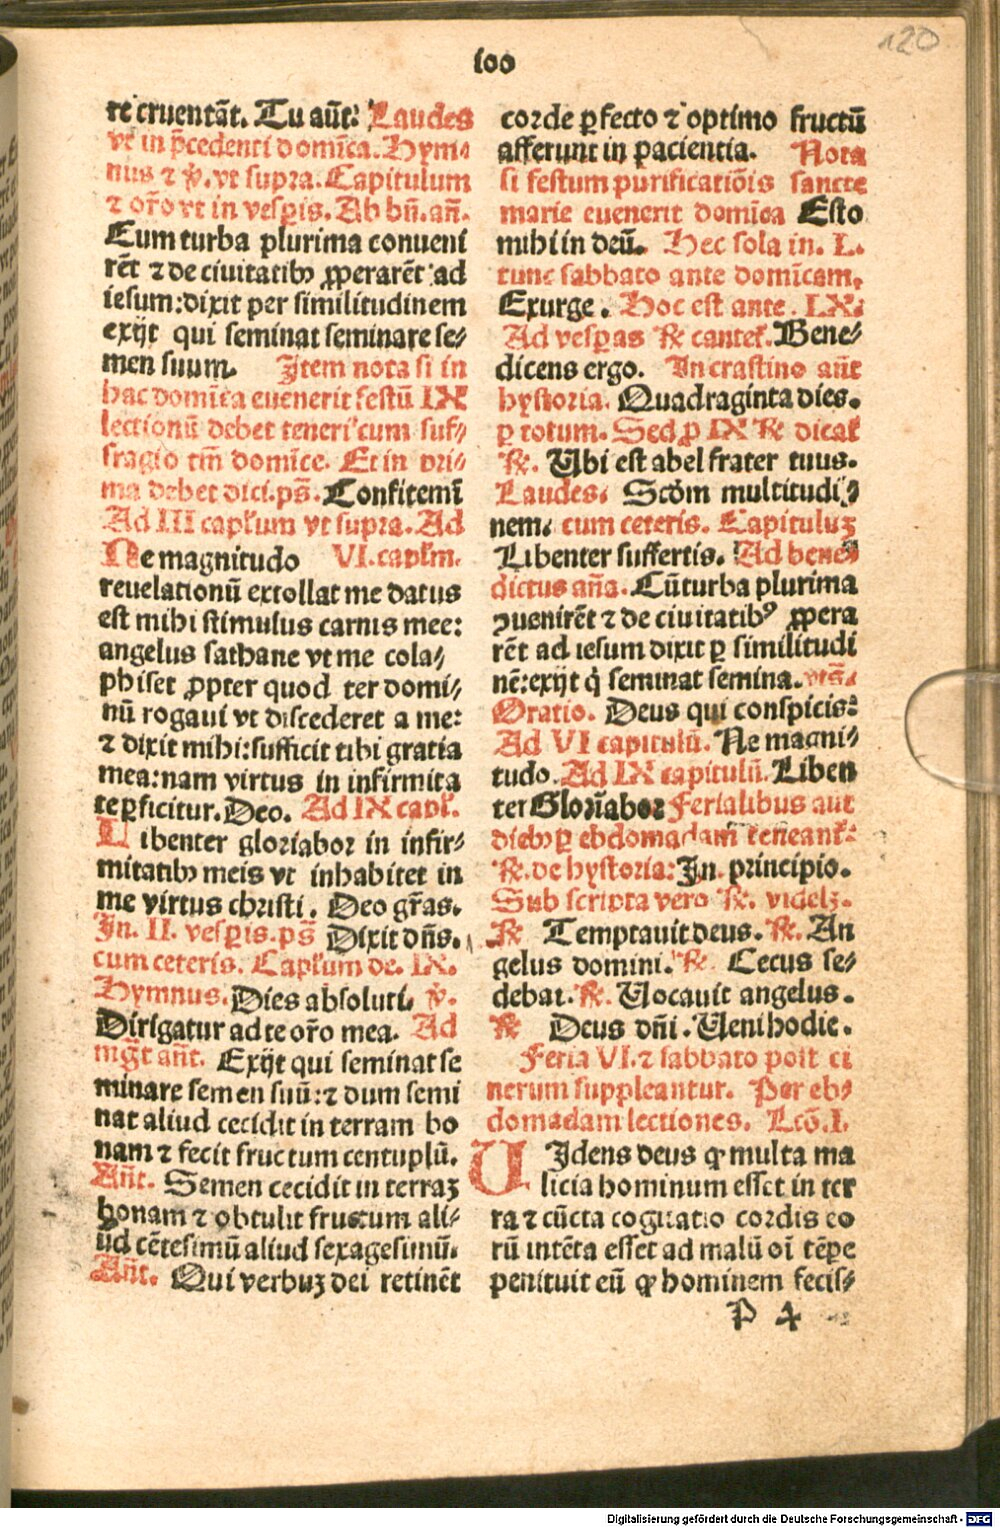 100
120
re cruentāt. Tu aūt: Laudes
vt in p̄cedenti domīca. Hym⸗
nus ⁊ v̄. vt supra. Capitulum
⁊ or̄o vt in vesp̱is. Ab bn̄. an̄.
Cum turba plurima conueni
rēt ⁊ de ciuitatibꝰ ꝓperarēt ad
iesum: dixit per similitudinem
exijt qui seminat seminare se⸗
men suum. Item nota si in
hac domīca euenerit festū IX
lectionū debet teneri cum suf⸗
fragio tm̄ domīce. Et in pri⸗
ma debet dici. ps̄. Confitemī
Ad III capl̓um vt supra. Ad
Ne magnitudo VI. capl̓m.
reuelationū extollat me datus
est mihi stimulus carnis mee:
angelus sathane vt me cola⸗
phiset ꝓpter quod ter domi⸗
nū rogaui vt discederet a me:
⁊ dixit mihi: sufficit tibi gratia
mea: nam virtus in infirmita
te ꝑficitur. Deo. Ad IX capl̓.
Libenter gloriabor in infir⸗
mitatibꝰ meis vt inhabitet in
me virtus christi. Deo gr̄as.
In. II. vesp̱is. ps̄ Dixit dn̄s.
cum ceteris. Capl̓um de. IX.
Hymnus. Dies absoluti. v̄.
Dirigatur ad te or̄o mea. Ad
mḡt an̄t. Exijt qui seminat se
minare semen suū: ⁊ dum semi
nat aliud cecidit in terram bo
nam ⁊ fecit fructum centuplū.
An̄t. Semen cecidit in terraꝫ
bonam ⁊ obtulit frustum ali⸗
ud cētesimū aliud sexagesimū.
An̄t. Qui verbuꝫ dei retinēt
corde ꝑfecto ⁊ optimo fructū
afferunt in pacientia. Nota
si festum purificatiōis sancte
marie euenerit domīca Esto
mihi in deū. Hec sola in. L.
tunc sabbato ante domīcam.
Exurge. Hoc est ante. LX.
Ad vesꝑas ℟ cantet̓. Bene⸗
dicens ergo. In crastino aūt
hystoria. Quadraginta dies.
ꝑ totum. Sed ꝓ IX ℟ dicat̓
℟. Ubi est abel frater tuus.
Laudes. Scd̄m multitudi⸗
nem. cum ceteris. Capituluꝫ
Libenter suffertis. Ad bene⸗
dictus an̄a. Cū turba plurima
ꝯuenirēt ⁊ de ciuitatibꝰ ꝓpera
rēt ad iesum dixit ꝑ similitudi
nē: exijt q̇ seminat semina. vts̄.
Oratio. Deus qui conspicis:
Ad VI capitulū. Ne magni⸗
tudo. Ad IX capitulū. Liben
ter Glorīabor Ferialibus aut
diebꝰ ꝑ ebdomadam teneant̓:
℟. de hystoria: In principio.
Sub scripta vero ℟. videlꝫ.
℟ Temptauit deus. ℟. An
gelus domini. ℟. Cecus se⸗
debat. ℟. Uocauit angelus.
℟ Deus dn̄i. Ueni hodie.
Feria VI. ⁊ sabbato post ci
nerum suppleantur. Per eb⸗
domadam lectiones. Lcō. I.
UIdens deus ꝙ multa ma
licia hominum esset in ter
ra ⁊ cūcta cogitatio cordis eo
rū intēta esset ad malū oī tēpe
penituit eū ꝙ hominem fecis⸗
P 4
Digitalisierung gefördert durch die Deutsche Forschungsgemeinschaft - DFG